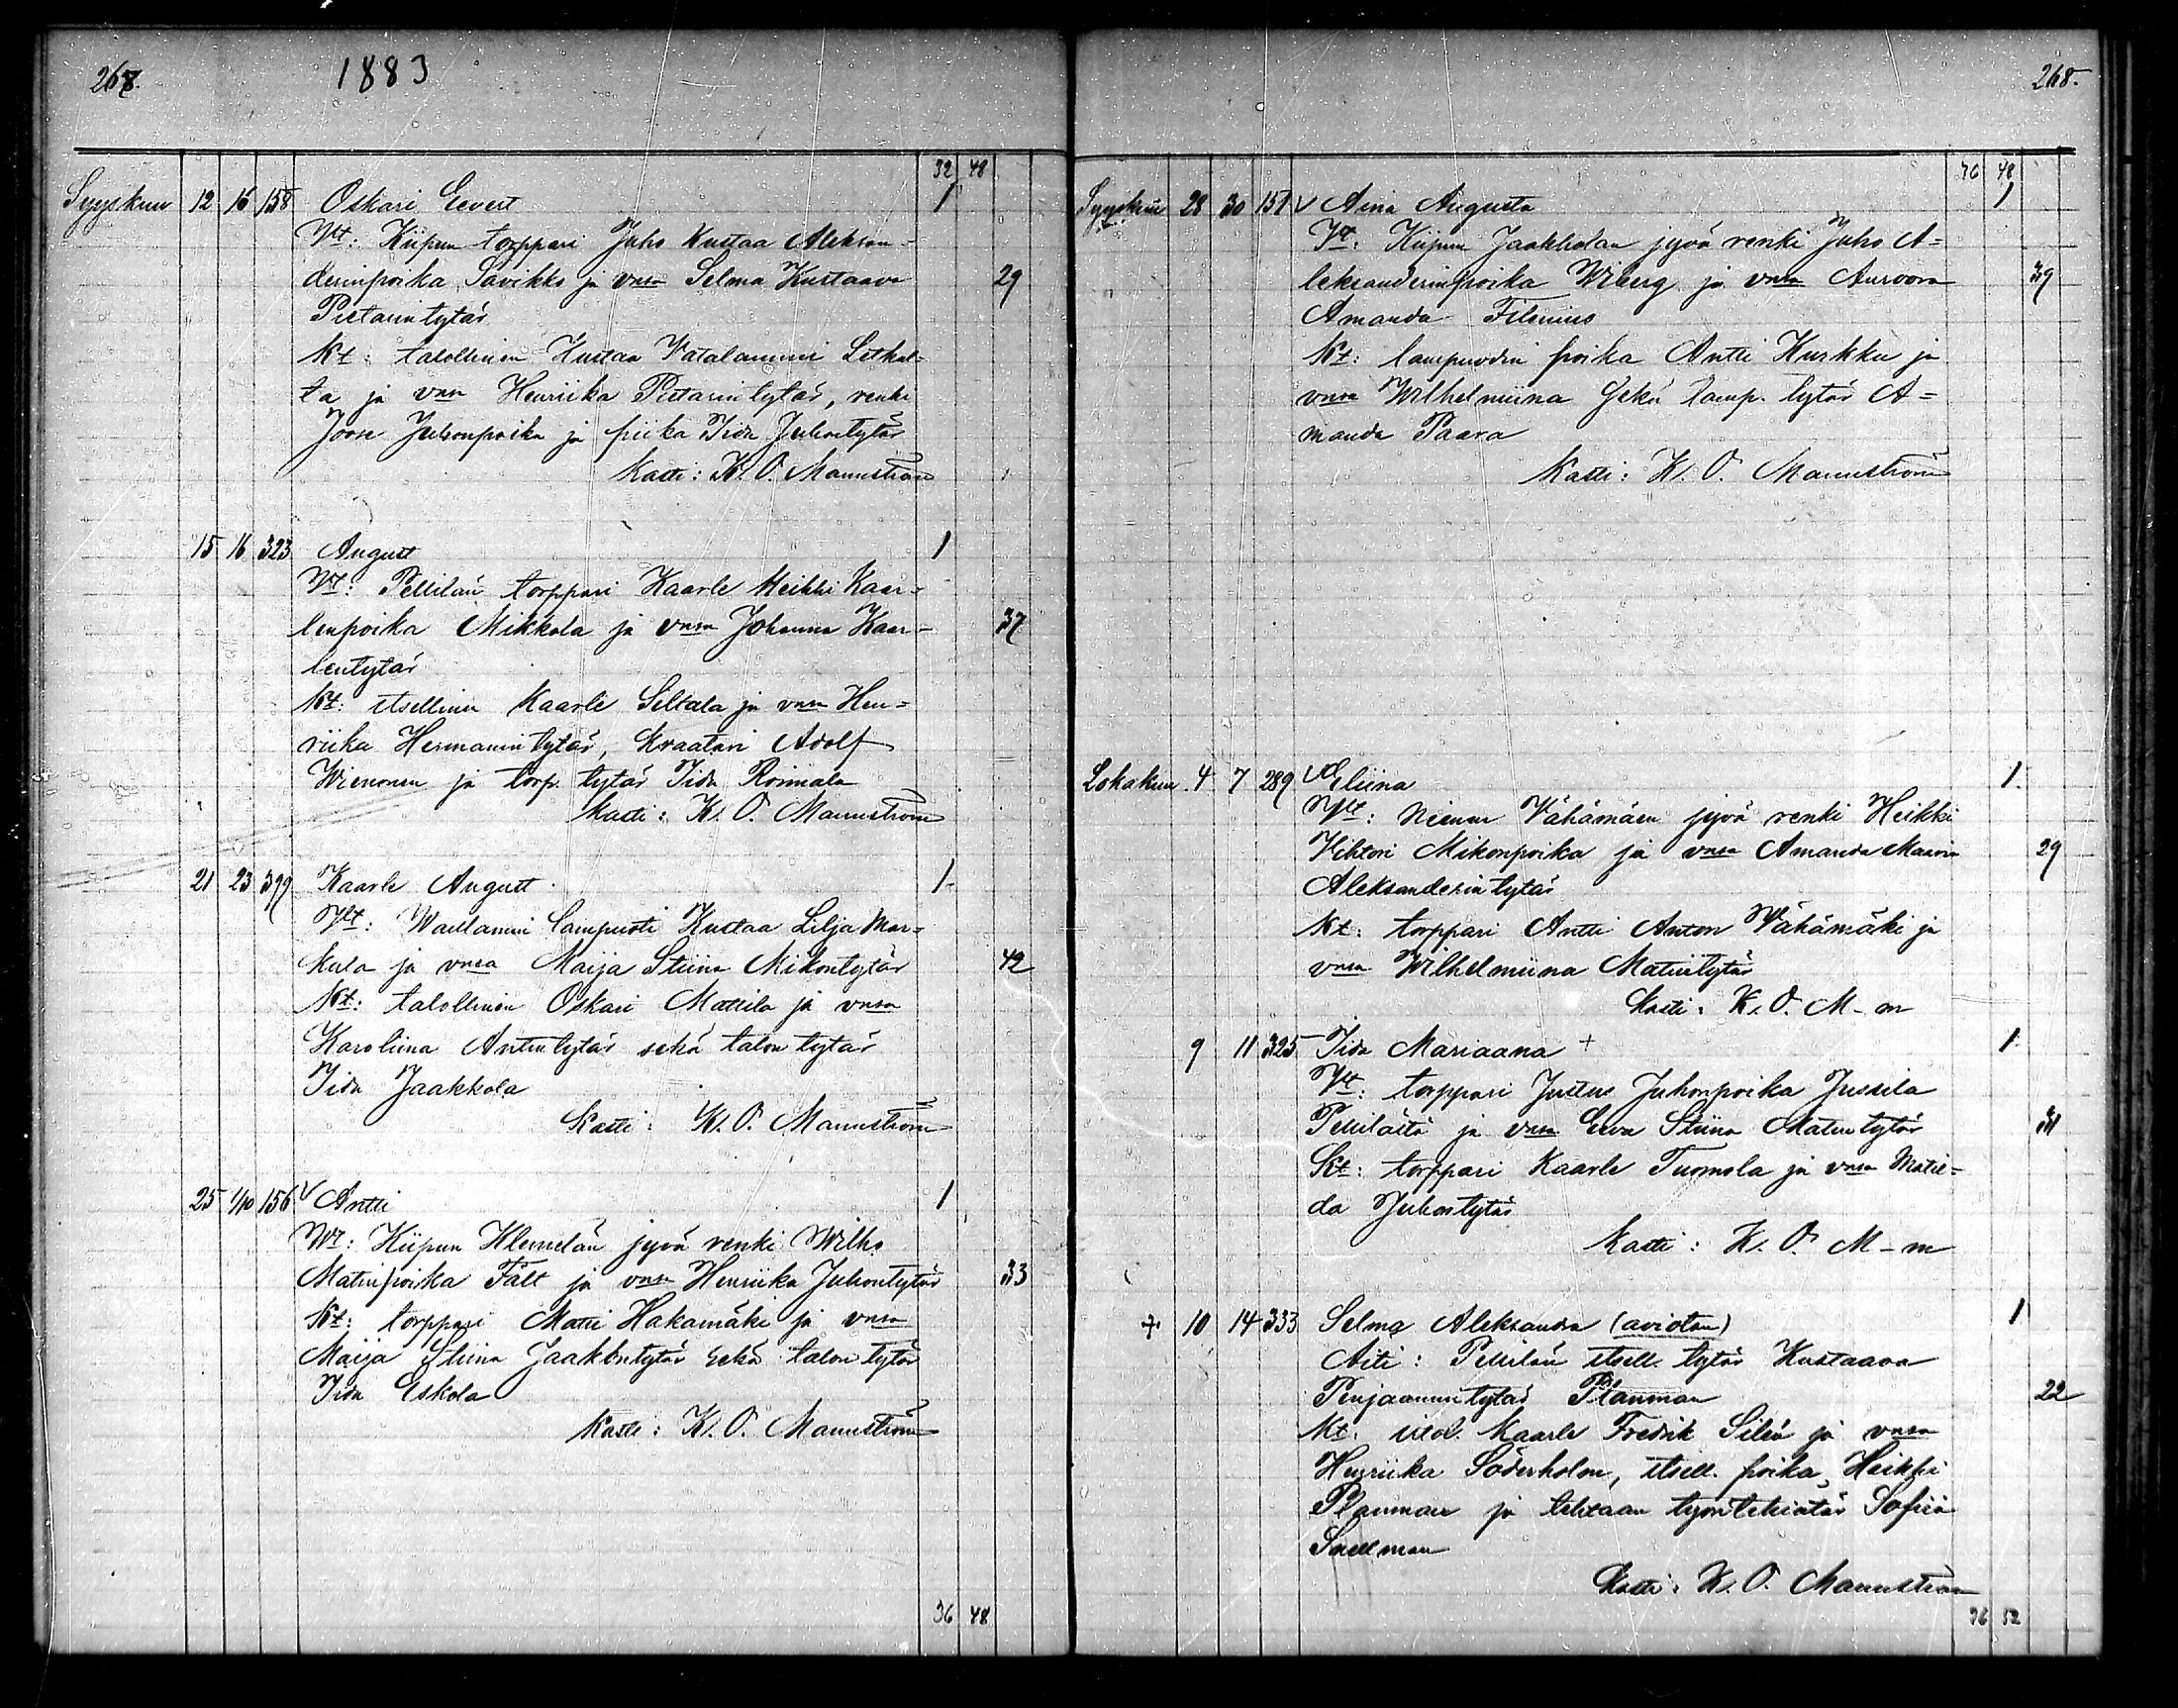 267. 1883
32 48
Syyskuu 12 16 158 Oskari Eevert 1
Vt: Kiipun torppari Juho Kustaa Aleksan-
derinpoika Savikko ja vmsa Selma Kustaava 29
Pietarintytär
Kt: talollinen Kustaa Vatalammi Letkul-
ta ja vmsa Henriika Pietarintytär, renki
Joose Juhonpoika ja piika Iida Juhontytär
Kasti: K. O. Mannström
15 16 323 August 1
Vt: Pellilän torppari Kaarle Heikki Kaar-
lenpoika Mikkola ja vmsa Johanna Kaar- 37
lentytär
Kt: itsellinen Kaarle Seltala ja vmsa Hen=
riika Hermanintytär, kraatari Adolf
Wienonen ja torp. tytär Iida Roinnala
Kasti: K. O. Mannström
21 23 399 Kaarle August 1
Vt: lampuoti Kustaa Lilja Mar=
kula ja vmsa Maija Stiina Mikontytär 42
Kt: talollinen Oskari Mattila ja vmsa
Karoliina Antintytär sekä talon tytär
Iida Jaakkola
Kasti: K. O. Mannström
25 1/10 156 v Antti 1
Vt: Kiipun Klemelän jyvä renki Wilho
Matinpoika Fält ja vmsa Henriika Juhontytär 33
Kt: torppari Matti Hakamäki ja vmsa
Maija Stiina Jaakontytär sekä talon tytär
Iida Eskola
Kasti: K. O. Mannström
36 48
268.
36 48
Syyskuu 28 30 151 v Aina Augusta 1
Vt: Kiipun Jaakkolan jyvä renki Juho A=
leksanderinpoika Wiberg ja vmsa Auroora 39
Amanda Filenius
Kt: lampuodin poika Antti Kurkku ja
vmsa Wilhelmiina sekä lamp. tytär A=
manda Paava
Kasti: K. O. Mannström
Lokakuu 4 7 289 v Eliina 1
Vt: Niemen Vähämäen jyvä renki Heikki
Vihtori Mikonpoika ja vmsa Amanda Maria 29
Aleksanderintytär
Kt: torppari Antti Anton Vähämäki ja
vmsa Wilhelmiina Matintytär
Kasti: K. O. M-m
9 11 325 Iida Mariaana + 1
Vt: torppari Justus Juhonpoika Jussila
Pellilästä ja vmsa Eeva Stiina Matintytär 31
Kt: torppari Kaarle Tuomola ja vmsa Matil=
da Juhontytär
Kasti: K. O. M-m
+ 10 14 333 Selma Aleksandra (avioton) 1
Äiti: Pellilän itsell. tytär Kustaava
Penjaamintytär Planman 22
Kt: Kaarle Fredrik Silén ja vmsa
Henriika Söderholm, itsell. poika Heikki
Planman ja tehtaan työntekiätär Sofiia
Snellman
Kasti: K. O. Mannström
36 52